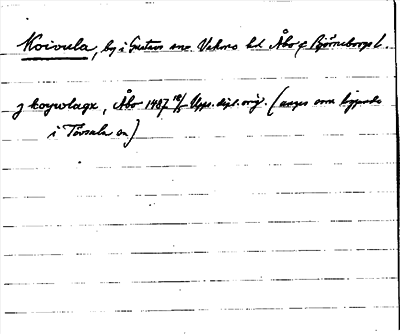 Koivula, by i Gustavs snr Vehmo hd Åbo o Björneborgs l.
j koywlagx, Åbo 1487 18/5 Upps. dipl. orig. (anges som liggande
i Tövsala sn)